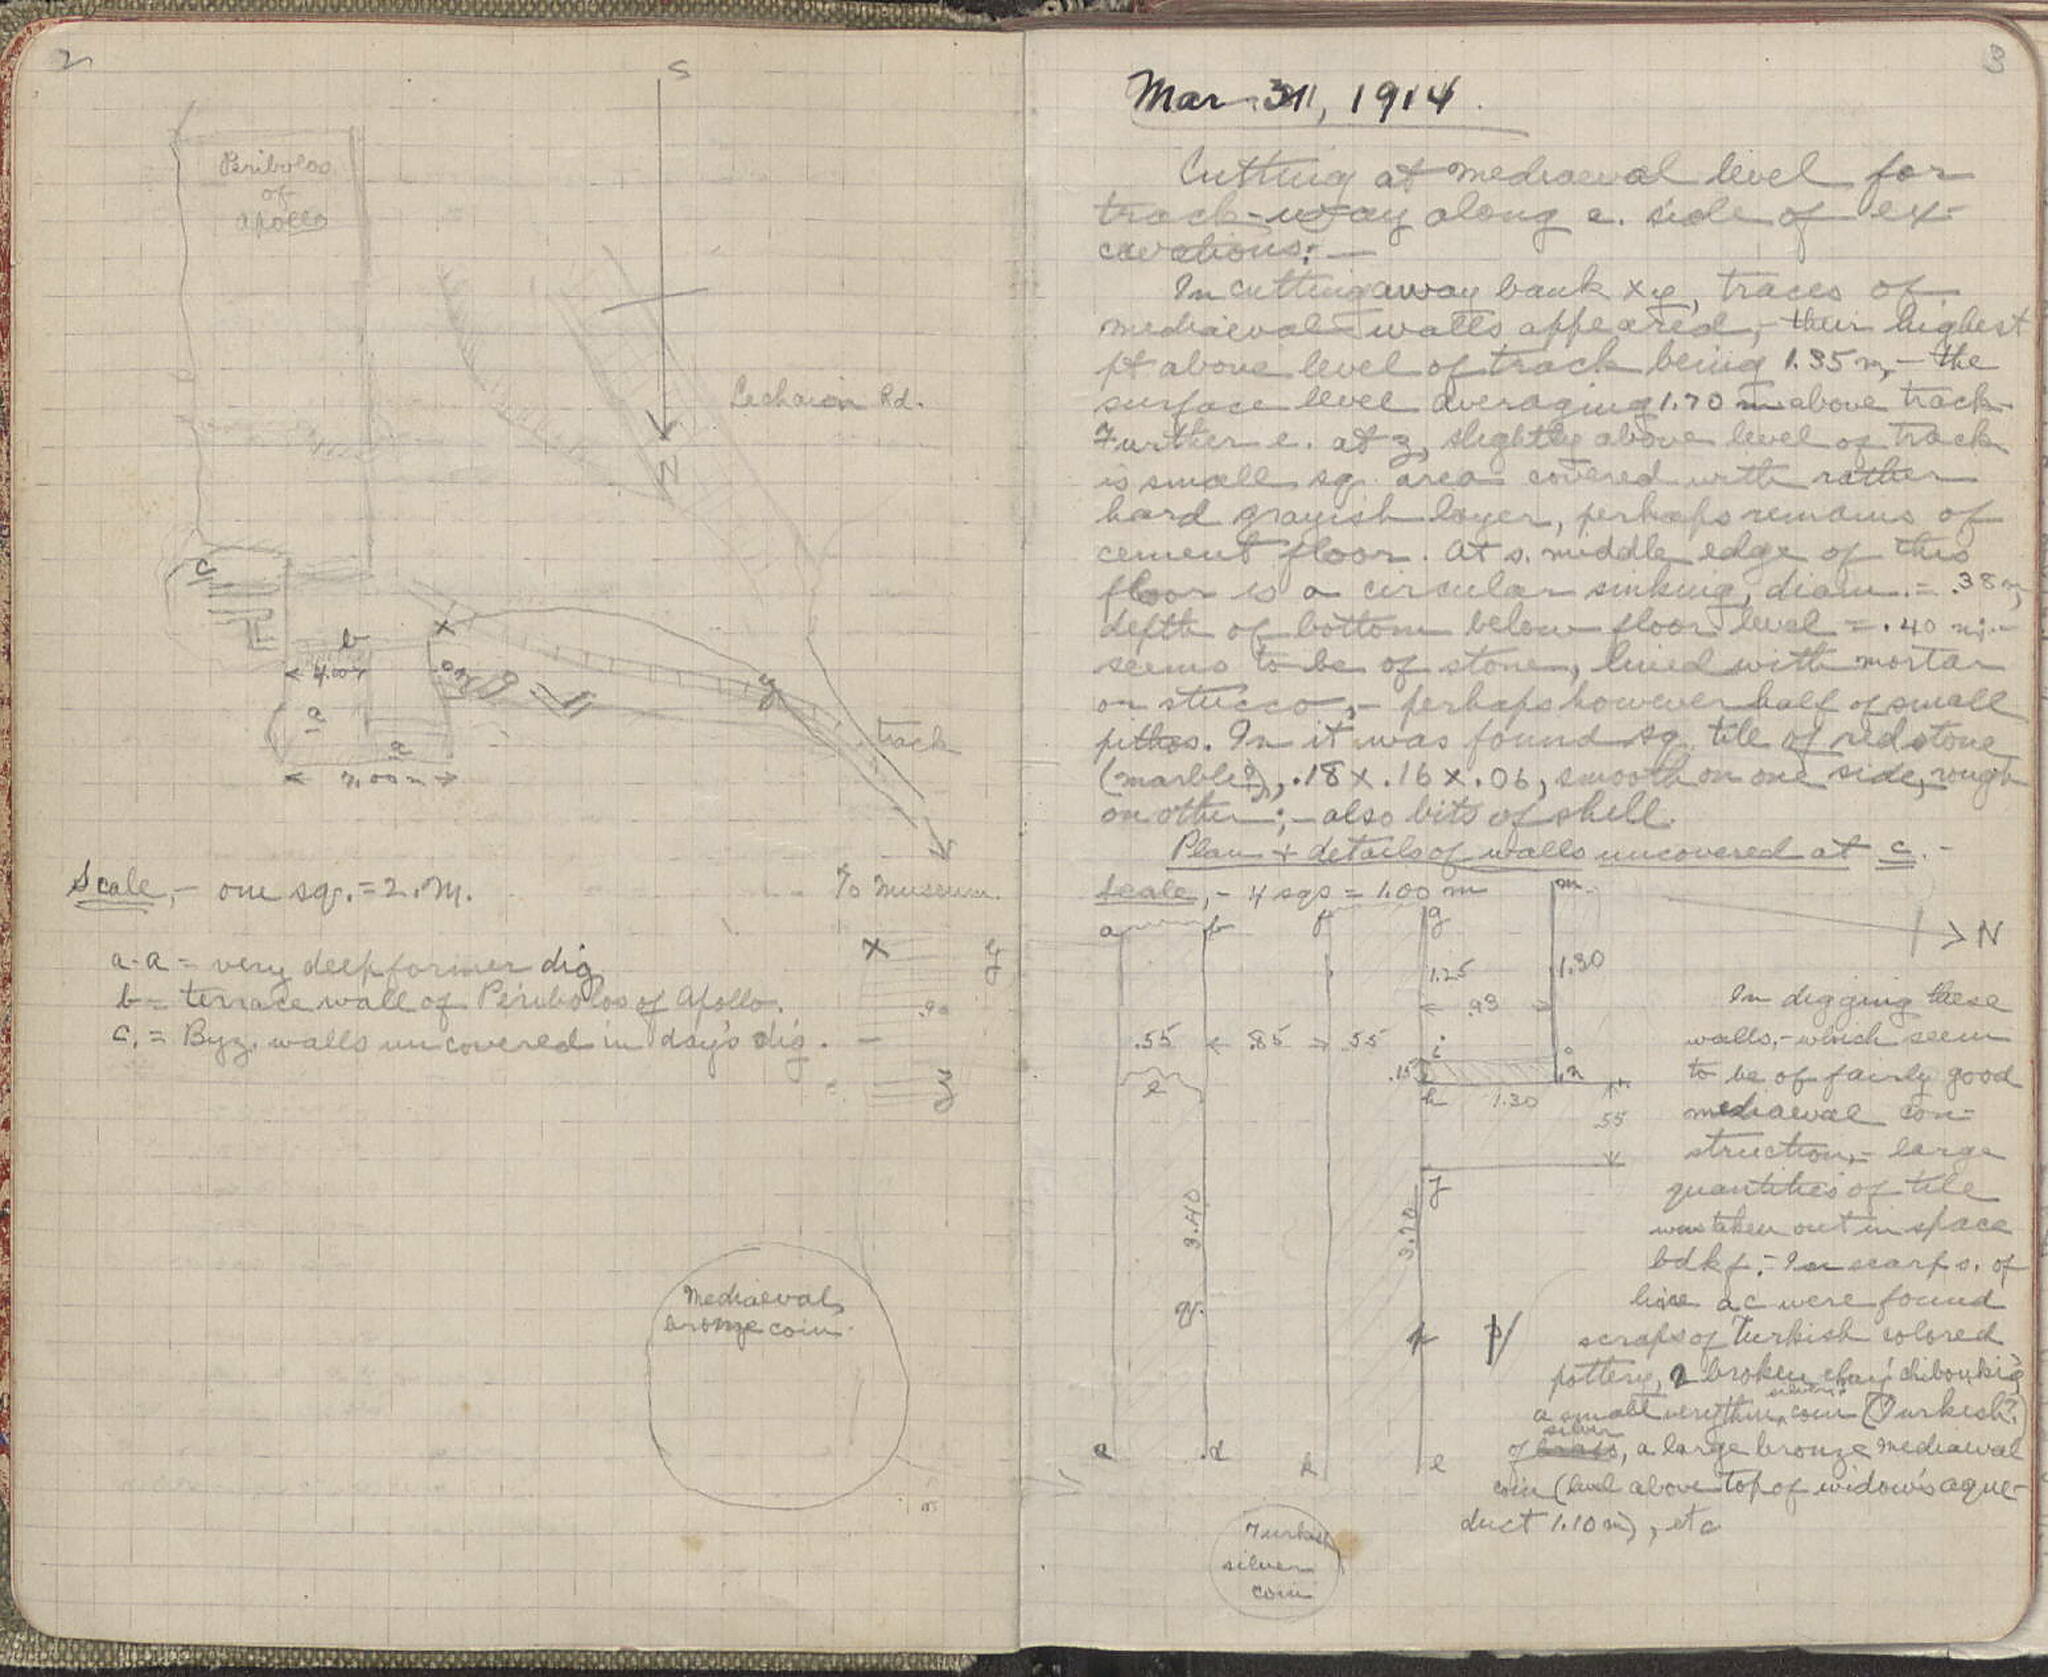 2
S
Peribolos
of
Apollo
Lechaion Rd.
N
c
b
x
4.00
a
y
a
track
7.00 m
Scale, - one sq. = 2. M.
To Museum.
a-a = very deep former dig
b = terrace wall of Peribolos of Apollo.
c. = Byz. walls uncovered in day's dig.
x
y
.90
Mediaeval
bronze coin.
3
Mar 31, 1914.
Cutting at mediaeval level for
track-way along e. side of ex-
cavations: -
In cutting away bank xy, traces of
mediaeval walls appeared, - their highest
pt above level of track being 1.35 m, - the
surface level averaging 1.70 m above track.
Further e. at z, slightly above level of track
is small sq. area covered with rather
hard grayish layer, perhaps remains of
cement floor. At s. middle edge of this
floor is a circular sinking, diam. = .38 m,
depth of bottom below floor level = .40 m; -
seems to be of stone, lined with mortar
or stucco, - perhaps however half of small
pithos. In it was found sq. tile of red stone
(marble?), .18 x .16 x .06, smooth on one side, rough
on other; - also bits of shell.
Plan + details of walls uncovered at c. -
Scale, - 4 sqs = 1.00 m
m
a
b
f
g
N
1.25
1.30
.93
.55
.85
.55
i
.15
n
e
h
1.30
.55
j
3.40
3.70
p
c
d
k
e
In digging these
walls, - which seem
to be of fairly good
mediaeval con-
struction, - large
quantities of tile
was taken out in space
bdkf. - In scarp s. of
line ac were found
scraps of Turkish colored
pottery, 2 broken clay 'chibouks',
a small very thin silver coin (Turkish?)
of brass silver, a large bronze mediaeval
coin (level above top of widow's aque-
duct 1.10 m), etc
Turkish
silver
coin